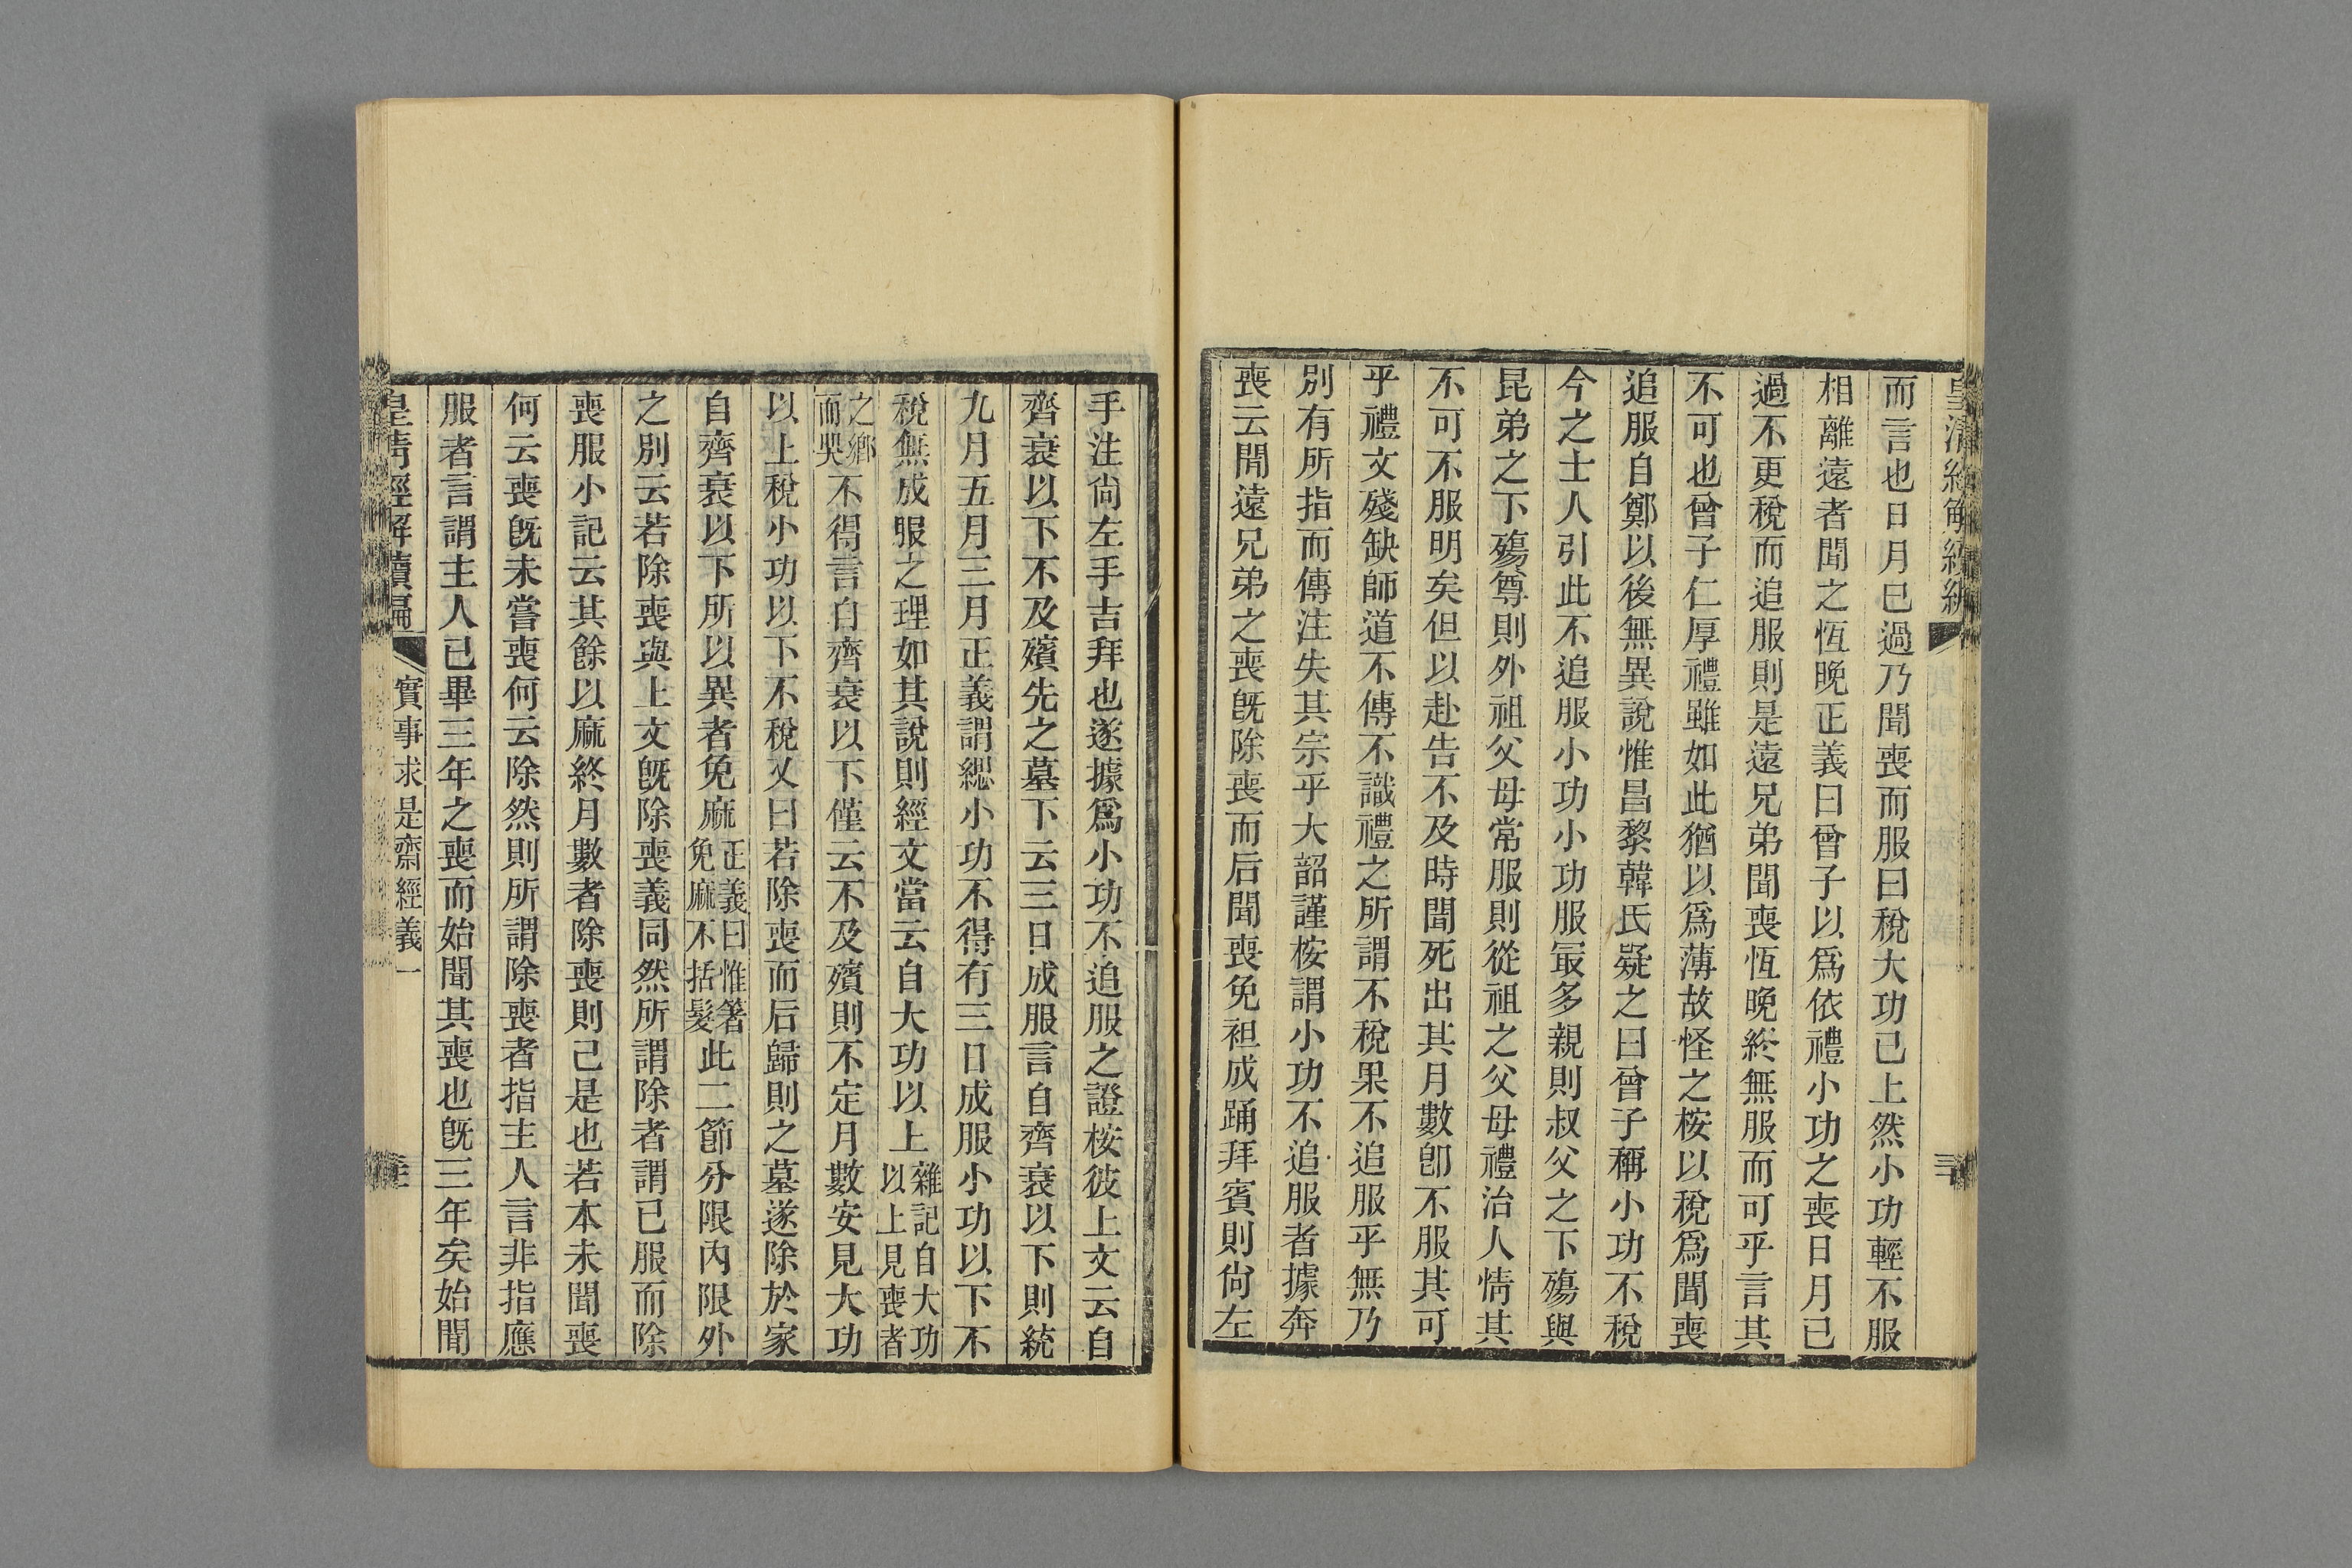 而言也日月已過乃聞喪而服曰稅大功已上然小功輕不服
相離遠者聞之恆晚正義曰曾子以爲依禮小功之喪日月已
過不更稅而追服則是遠兄弟聞喪恆晚終無服而可乎言其
不可也曾子仁厚禮雖如此猶以爲薄故怪之桉以稅爲聞喪
追服自鄭以後無異說惟昌黎韓氏疑之曰曾子稱小功不稅
今之士人引此不追服小功小功服冣多親則叔父之下殤與
昆弟之下殤尊則外祖父母常服則從祖之父母禮治人情其
不可不服明矣但以赴告不及時聞死出其月數卽不服其可
乎禮文殘缺師道不傳不識禮之所謂不稅果不追服乎無乃
別有所指而傳注失其宗乎大韶謹桉謂小功不追服者據奔
喪云聞遠兄弟之喪旣除喪而后聞喪免袒成踊拜賓則尙左
手注尙左手吉拜也遂據爲小功不追服之證桉彼上文云自
齊衰以下不及殯先之墓下云三日成服言自齊衰以下則統
九月五月三月正義謂緦小功不得有三日成服小功以下不
稅無成服之理如其說則經文當云自大功以上雜記自大功以上見喪者
之鄉而哭不得言自齊衰以下僅云不及殯則不定月數安見大功
以上稅小功以下不稅又曰若除喪而后歸則之墓遂除於家
自齊衰以下所以異者免麻正義曰惟箸免麻不括髮此二節分限內限外
之別云若除喪與上文旣除喪義同然所謂除者謂已服而除
喪服小記云其餘以麻終月數者除喪則己是也若本未聞喪
何云喪旣未嘗喪何云除然則所謂除喪者指主人言非指應
服者言謂主人已畢三年之喪而始聞其喪也旣三年矣始聞
皇淸經解續編
實事求是齋經義一